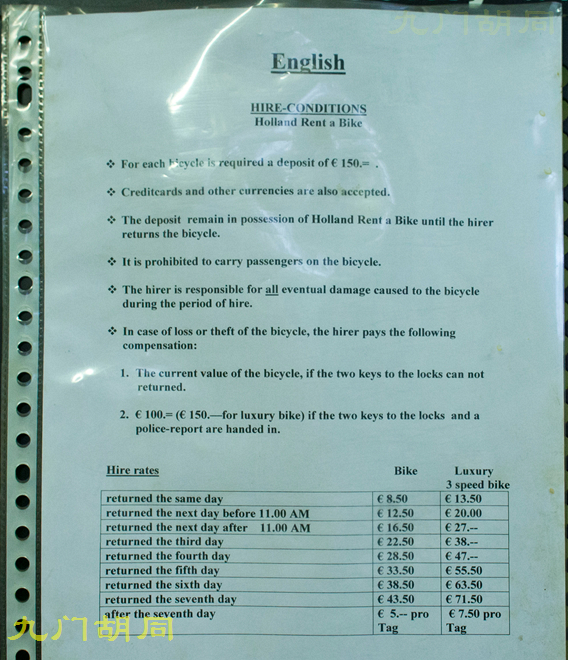 九门胡同
English
HIRE-CONDITIONS
Holland Rent a Bike
❖ For each bicycle is required a deposit of € 150.= .
❖ Creditcards and other currencies are also accepted.
❖ The deposit remain in possession of Holland Rent a Bike until the hirer
returns the bicycle.
❖ It is prohibited to carry passengers on the bicycle.
❖ The hirer is responsible for all eventual damage caused to the bicycle
during the period of hire.
❖ In case of loss or theft of the bicycle, the hirer pays the following
compensation:
1. The current value of the bicycle, if the two keys to the locks can not
returned.
2. € 100.= (€ 150.—for luxury bike) if the two keys to the locks and a
police-report are handed in.
Hire rates Bike Luxury
3 speed bike
returned the same day € 8.50 € 13.50
returned the next day before 11.00 AM € 12.50 € 20.00
returned the next day after 11.00 AM € 16.50 € 27.--
returned the third day € 22.50 € 38.--
returned the fourth day € 28.50 € 47.--
returned the fifth day € 33.50 € 55.50
returned the sixth day € 38.50 € 63.50
returned the seventh day € 43.50 € 71.50
after the seventh day € 5.-- pro € 7.50 pro
Tag Tag
九门胡同